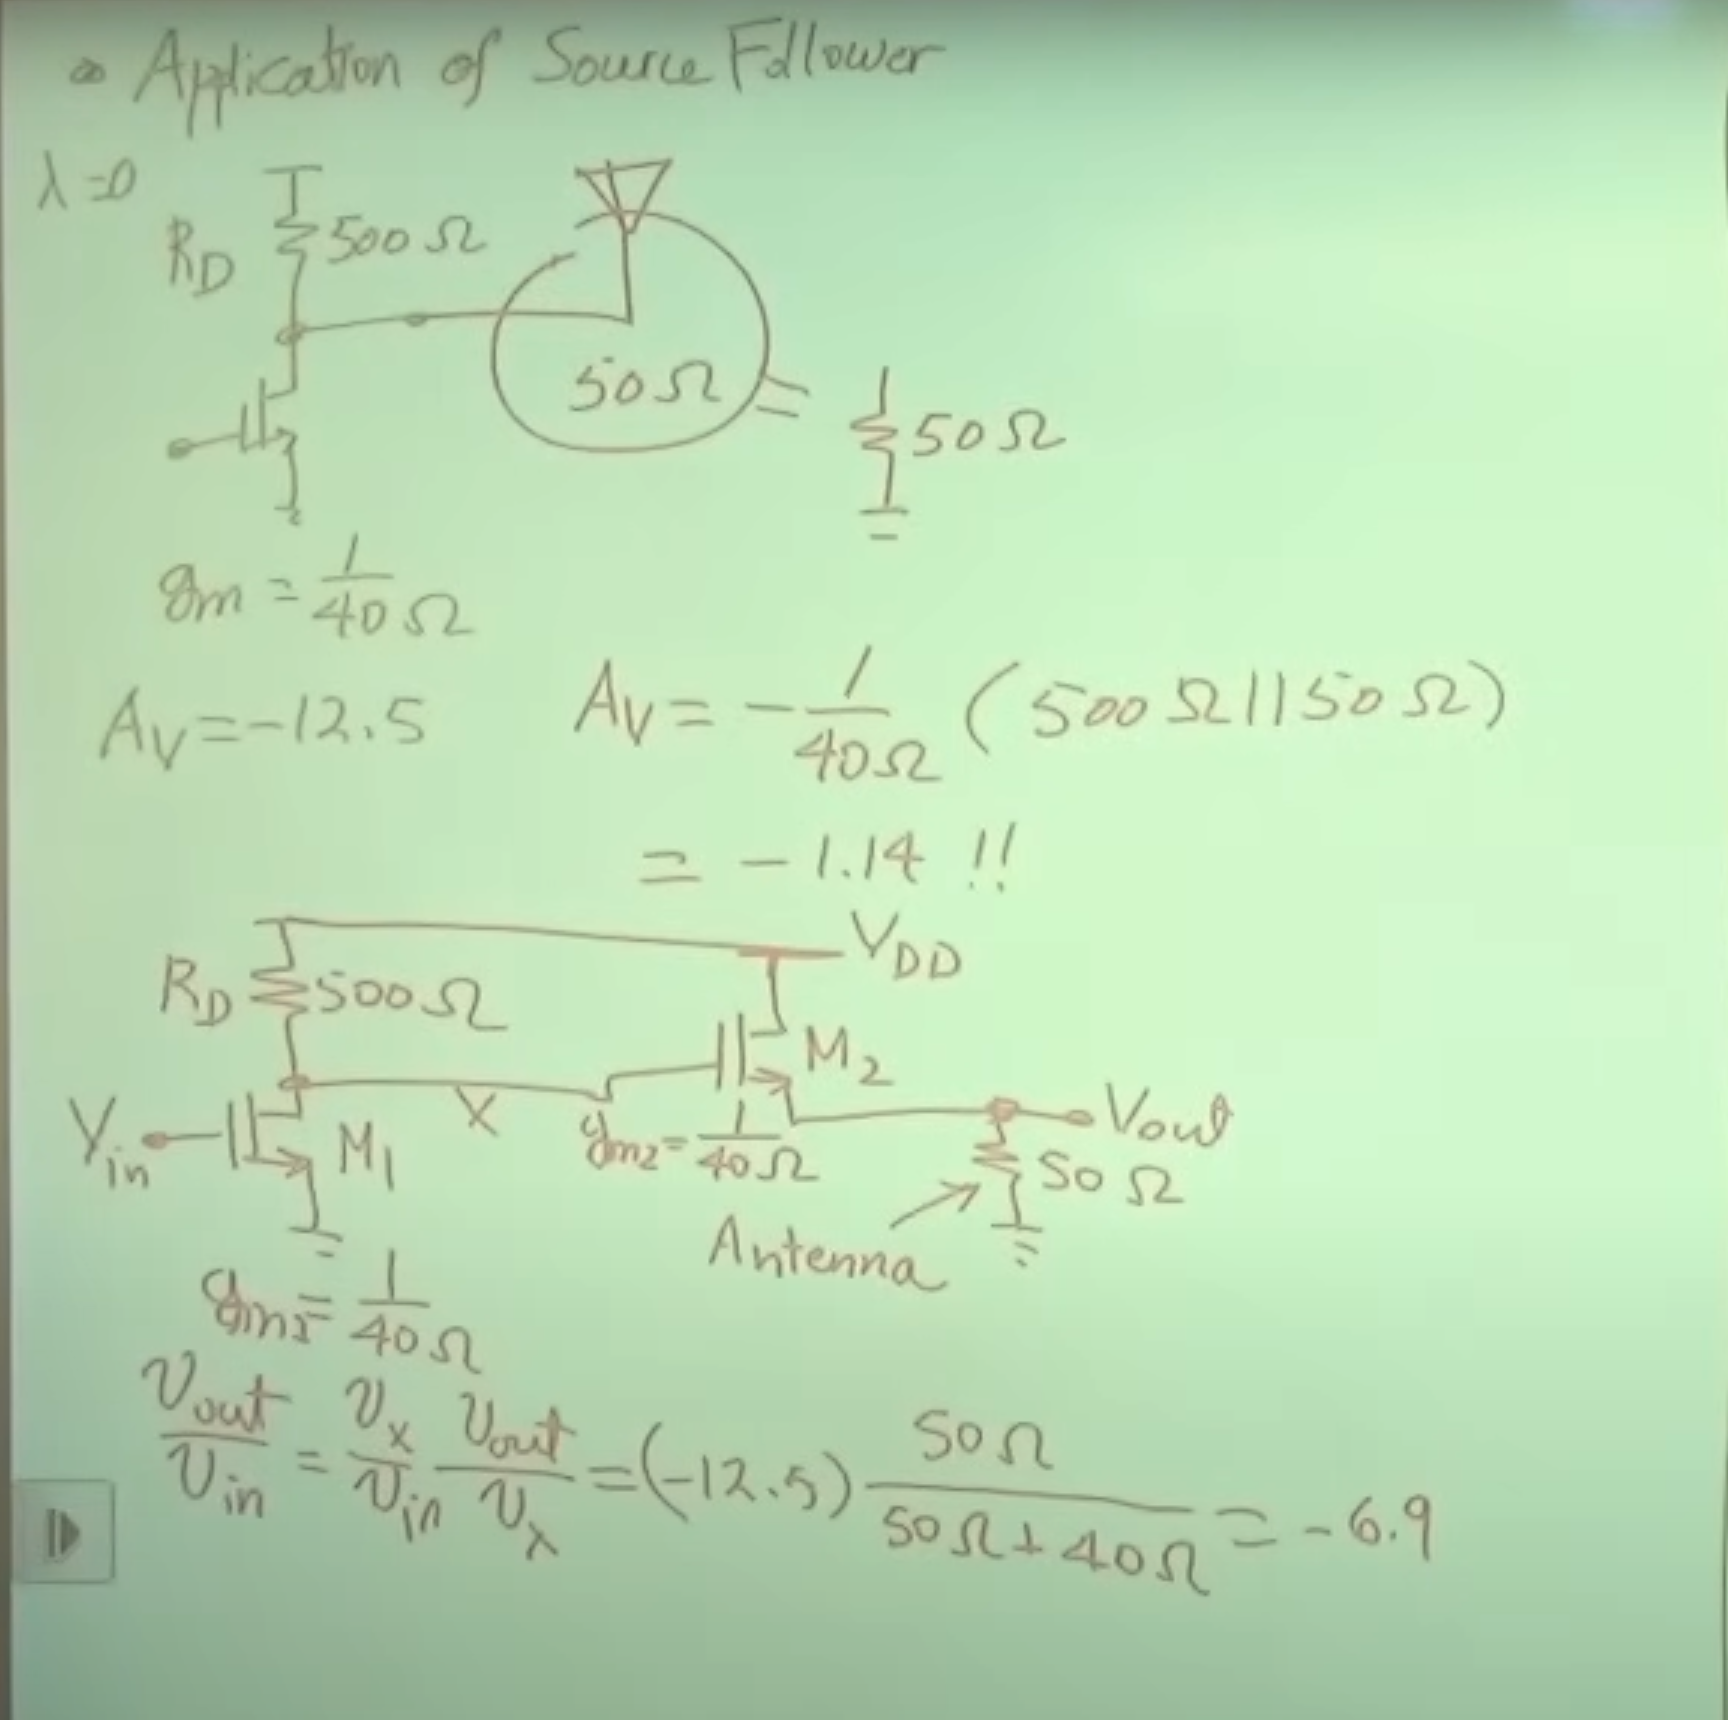 Application of Source Follower
λ=0
R_D 500Ω
50Ω = 50Ω
g_m = 1/40Ω
A_V = -12.5
A_V = - 1/40Ω (500Ω || 50Ω)
= -1.14 !!
V_DD
R_D 500Ω
M_2
V_in M_1 X g_m2 = 1/40Ω V_out
50Ω
Antenna
g_m1 = 1/40Ω
v_out/v_in = v_x/v_in v_out/v_x = (-12.5) 50Ω/(50Ω + 40Ω) = -6.9